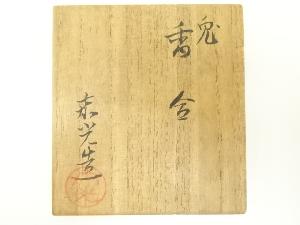 兎
香合
光造